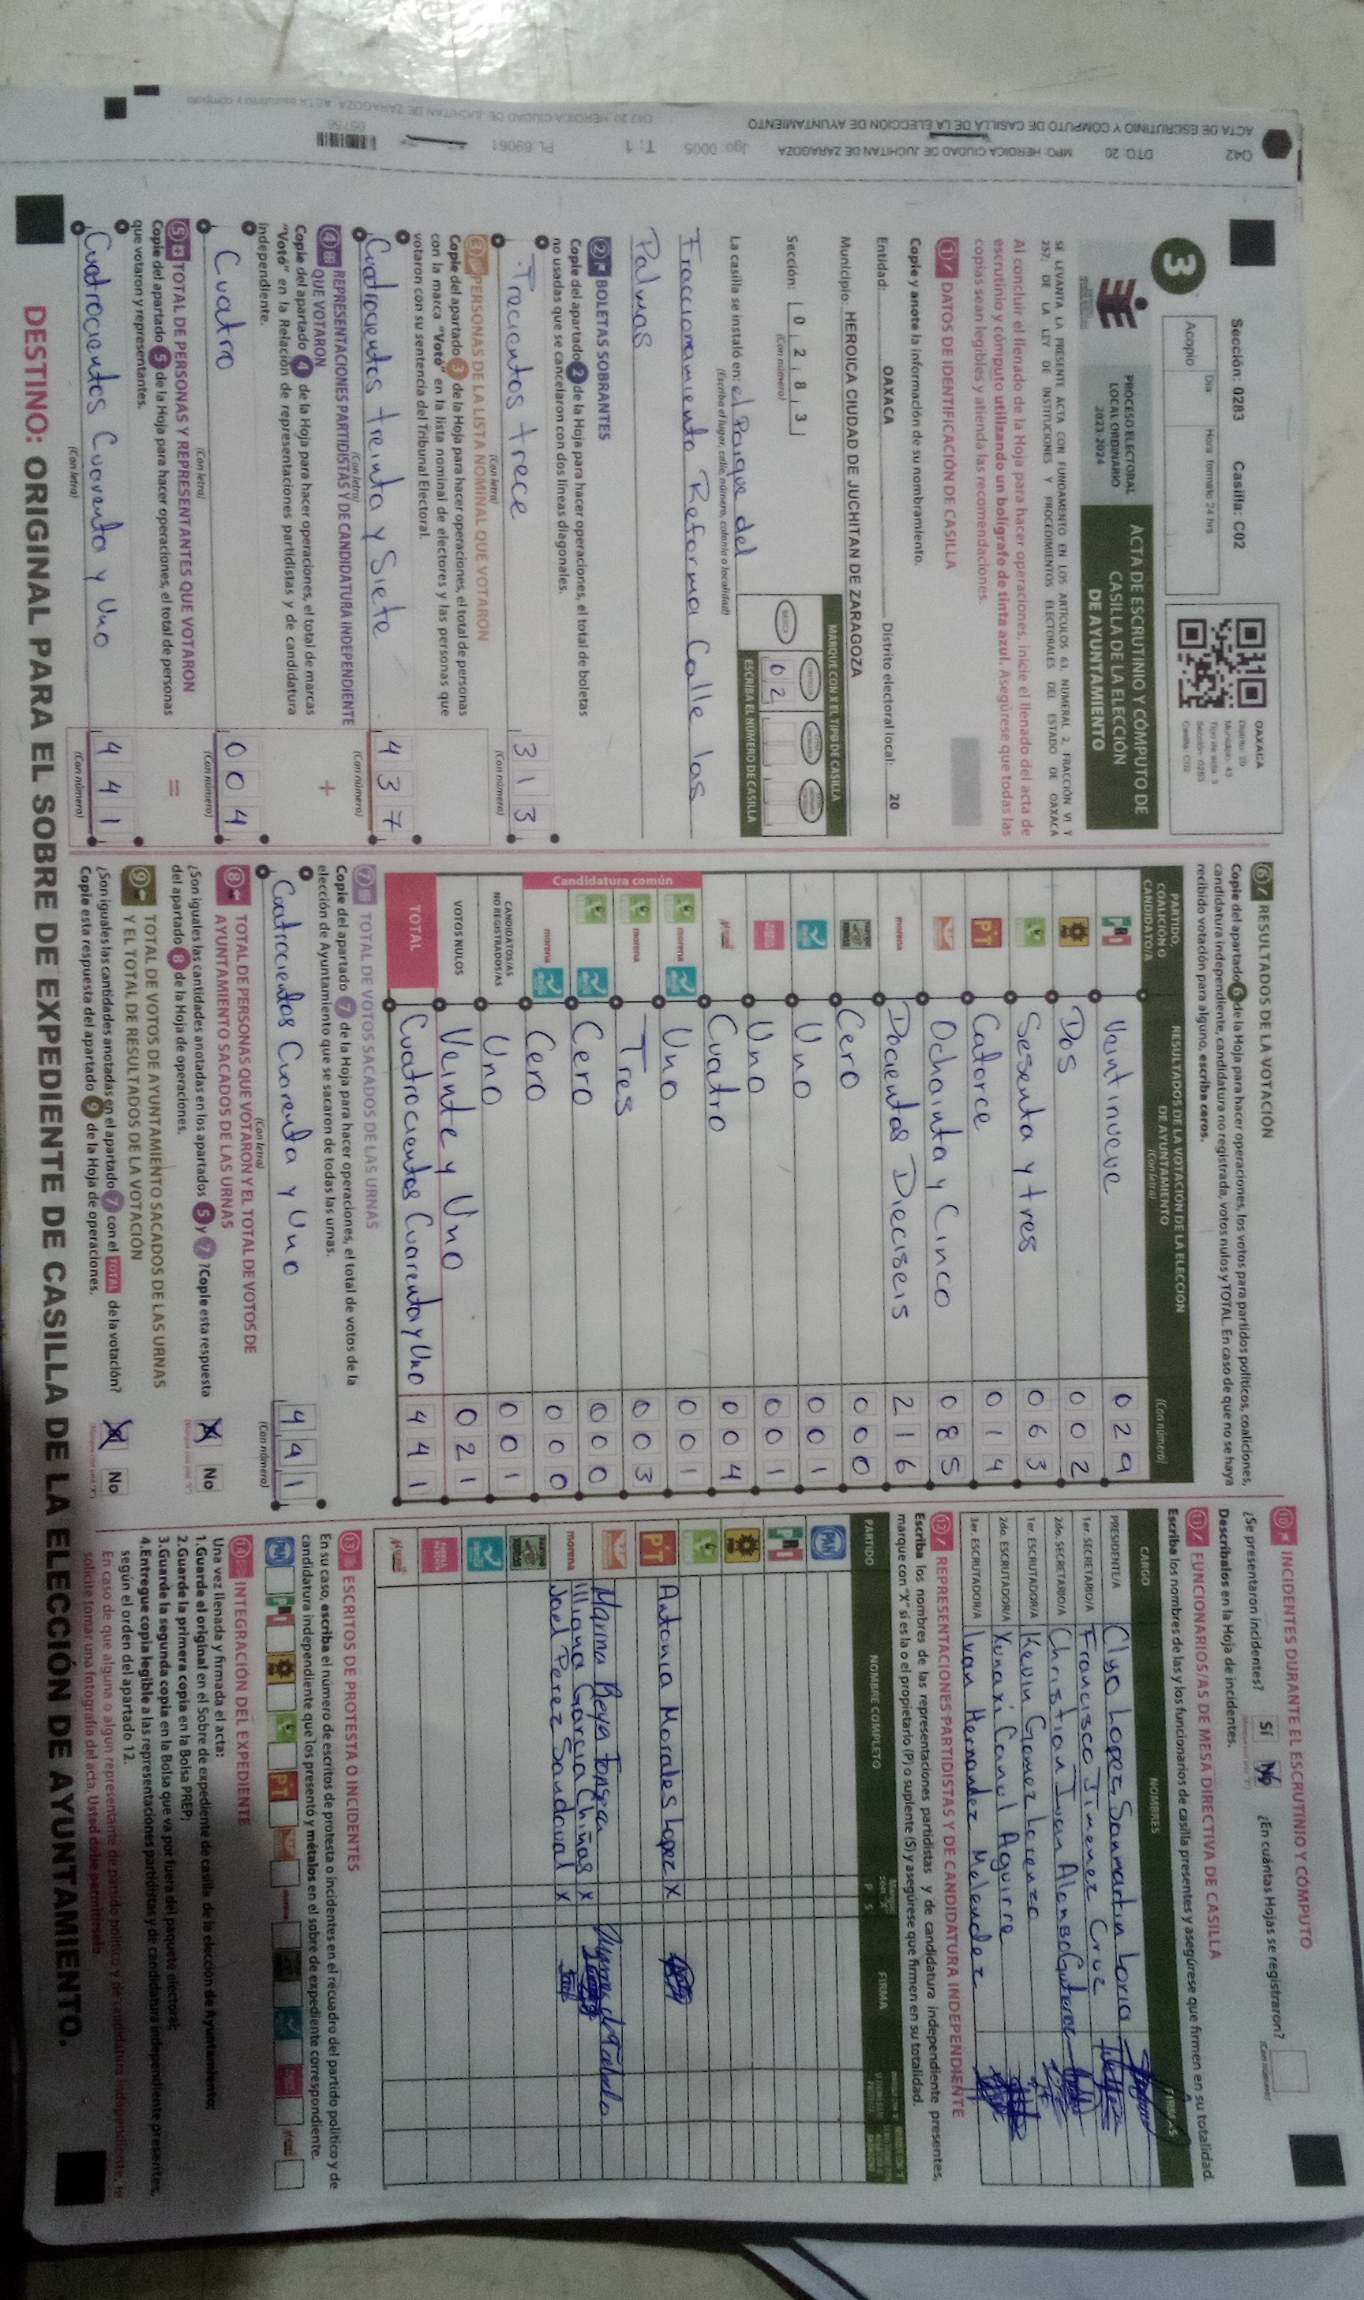 Sección: 0283 Casilla: C02
3
Acopio
Día Hora formato 24 hrs
PROCESO ELECTORAL
LOCAL ORDINARIO
2023-2024
ACTA DE ESCRUTINIO Y CÓMPUTO DE
CASILLA DE LA ELECCIÓN
DE AYUNTAMIENTO
OAXACA
Distrito: 20
Municipio: 43
Sección: 0283
Casilla: C02
SE LEVANTA LA PRESENTE ACTA CON FUNDAMENTO EN LOS ARTÍCULOS 63, NUMERAL 2, FRACCIÓN VI Y
257, DE LA LEY DE INSTITUCIONES Y PROCEDIMIENTOS ELECTORALES DEL ESTADO DE OAXACA
Al concluir el llenado de la Hoja para hacer operaciones, inicie el llenado del acta de
escrutinio y cómputo utilizando un bolígrafo de tinta azul. Asegúrese que todas las
copias sean legibles y atienda las recomendaciones.
1 DATOS DE IDENTIFICACIÓN DE CASILLA
Copie y anote la información de su nombramiento.
Entidad: OAXACA Distrito electoral local: 20
Municipio: HEROICA CIUDAD DE JUCHITAN DE ZARAGOZA
Sección: 0 2 8 3
(Con número)
MARQUE CON X EL TIPO DE CASILLA
BÁSICA
0 2
ESCRIBA EL NÚMERO DE CASILLA
La casilla se instaló en: el Parque del
(Escriba el lugar, calle, número, colonia o localidad)
Fraccionamiento Reforma Calle las
Palmas
2 BOLETAS SOBRANTES
Copie del apartado 2 de la Hoja para hacer operaciones, el total de boletas
no usadas que se cancelaron con dos líneas diagonales.
Trecientos trece 3 1 3
(Con letra) (Con número)
3 PERSONAS DE LA LISTA NOMINAL QUE VOTARON
Copie del apartado 3 de la Hoja para hacer operaciones, el total de personas
con la marca "Votó" en la lista nominal de electores y las personas que
votaron con su sentencia del Tribunal Electoral.
Cuatrocientos treinta y Siete 4 3 7
(Con letra) (Con número)
4 REPRESENTACIONES PARTIDISTAS Y DE CANDIDATURA INDEPENDIENTE
QUE VOTARON
+
Copie del apartado 4 de la Hoja para hacer operaciones, el total de marcas
"Votó" en la Relación de representaciones partidistas y de candidatura
independiente.
Cuatro 0 0 4
(Con letra) (Con número)
5 TOTAL DE PERSONAS Y REPRESENTANTES QUE VOTARON
=
Copie del apartado 5 de la Hoja para hacer operaciones, el total de personas
que votaron y representantes.
Cuatrocientos Cuarenta y Uno 4 4 1
(Con letra) (Con número)
6 RESULTADOS DE LA VOTACIÓN
Copie del apartado 6 de la Hoja para hacer operaciones, los votos para partidos políticos, coaliciones,
candidatura independiente, candidatura no registrada, votos nulos y TOTAL. En caso de que no se haya
recibido votación para alguno, escriba ceros.
PARTIDO,
COALICIÓN O
CANDIDATO/A
RESULTADOS DE LA VOTACIÓN DE LA ELECCIÓN
DE AYUNTAMIENTO
(Con letra)
(Con número)
PRI Veintinueve 0 2 9
Dos 0 0 2
Sesenta y tres 0 6 3
PT Catorce 0 1 4
Ochointa y Cinco 0 8 5
morena Docientos Dieciseis 2 1 6
Cero 0 0 0
Uno 0 0 1
Uno 0 0 1
Cuatro 0 0 4
Candidatura común
morena Uno 0 0 1
morena Tres 0 0 3
Cero 0 0 0
morena Cero 0 0 0
CANDIDATOS/AS
NO REGISTRADOS/AS Uno 0 0 1
VOTOS NULOS Veinte y Uno 0 2 1
TOTAL Cuatrocientos Cuarenta y Uno 4 4 1
7 TOTAL DE VOTOS SACADOS DE LAS URNAS
Copie del apartado 7 de la Hoja para hacer operaciones, el total de votos de la
elección de Ayuntamiento que se sacaron de todas las urnas.
Cuatrocientos Cuarenta y Uno 4 4 1
(Con letra) (Con número)
8 TOTAL DE PERSONAS QUE VOTARON Y EL TOTAL DE VOTOS DE
AYUNTAMIENTO SACADOS DE LAS URNAS
¿Son iguales las cantidades anotadas en los apartados 5 y 7? Copie esta respuesta
del apartado 8 de la Hoja de operaciones.
No
9 TOTAL DE VOTOS DE AYUNTAMIENTO SACADOS DE LAS URNAS
Y EL TOTAL DE RESULTADOS DE LA VOTACIÓN
¿Son iguales las cantidades anotadas en el apartado 7 con el TOTAL de la votación?
Copie esta respuesta del apartado 9 de la Hoja de operaciones.
No
10 INCIDENTES DURANTE EL ESCRUTINIO Y CÓMPUTO
¿Se presentaron incidentes? Sí No ¿En cuántas Hojas se registraron?
(Con número)
Descríbalos en la Hoja de incidentes.
11 FUNCIONARIOS/AS DE MESA DIRECTIVA DE CASILLA
Escriba los nombres de las y los funcionarios de casilla presentes y asegúrese que firmen en su totalidad.
CARGO NOMBRES FIRMAS
PRESIDENTE/A Clyo Lopez Sanmartin Loria
1er. SECRETARIO/A Francisco Jimenez Cruz
2do. SECRETARIO/A Christian Ivan Alonso
1er. ESCRUTADOR/A Kevin Gomez Lorenzo
2do. ESCRUTADOR/A Xunaxi Canul Aguirre
3er. ESCRUTADOR/A Ivan Hernandez Melendez
12 REPRESENTACIONES PARTIDISTAS Y DE CANDIDATURA INDEPENDIENTE
Escriba los nombres de las representaciones partidistas y de candidatura independiente presentes,
marque con "X" si es la o el propietario (P) o suplente (S) y asegúrese que firmen en su totalidad.
PARTIDO NOMBRE COMPLETO P S FIRMA
PAN
PRI
PT Antonia Morales Lopez X
Marina Reya Fonseca
Illiana Garcia Chiñas X
morena Joel Perez Sandoval X
13 ESCRITOS DE PROTESTA O INCIDENTES
En su caso, escriba el número de escritos de protesta o incidentes en el recuadro del partido político y de
candidatura independiente que los presentó y métalos en el sobre de expediente correspondiente.
PAN PRI PT
14 INTEGRACIÓN DEL EXPEDIENTE
Una vez llenada y firmada el acta:
1. Guarde el original en el Sobre de expediente de casilla de la elección de Ayuntamiento;
2. Guarde la primera copia en la Bolsa PREP;
3. Guarde la segunda copia en la Bolsa que va por fuera del paquete electoral;
4. Entregue copia legible a las representaciones partidistas y de candidatura independiente presentes,
según el orden del apartado 12.
En caso de que alguna o algun representante de partido político y de candidatura independiente, le
solicite tomar una fotografía del acta, Usted debe permitírselo.
DESTINO: ORIGINAL PARA EL SOBRE DE EXPEDIENTE DE CASILLA DE LA ELECCIÓN DE AYUNTAMIENTO.
042 DTO: 20 MPO: HEROICA CIUDAD DE JUCHITAN DE ZARAGOZA Jgo: 0005 T: 1 PL: 69061
ACTA DE ESCRUTINIO Y CÓMPUTO DE CASILLA DE LA ELECCIÓN DE AYUNTAMIENTO